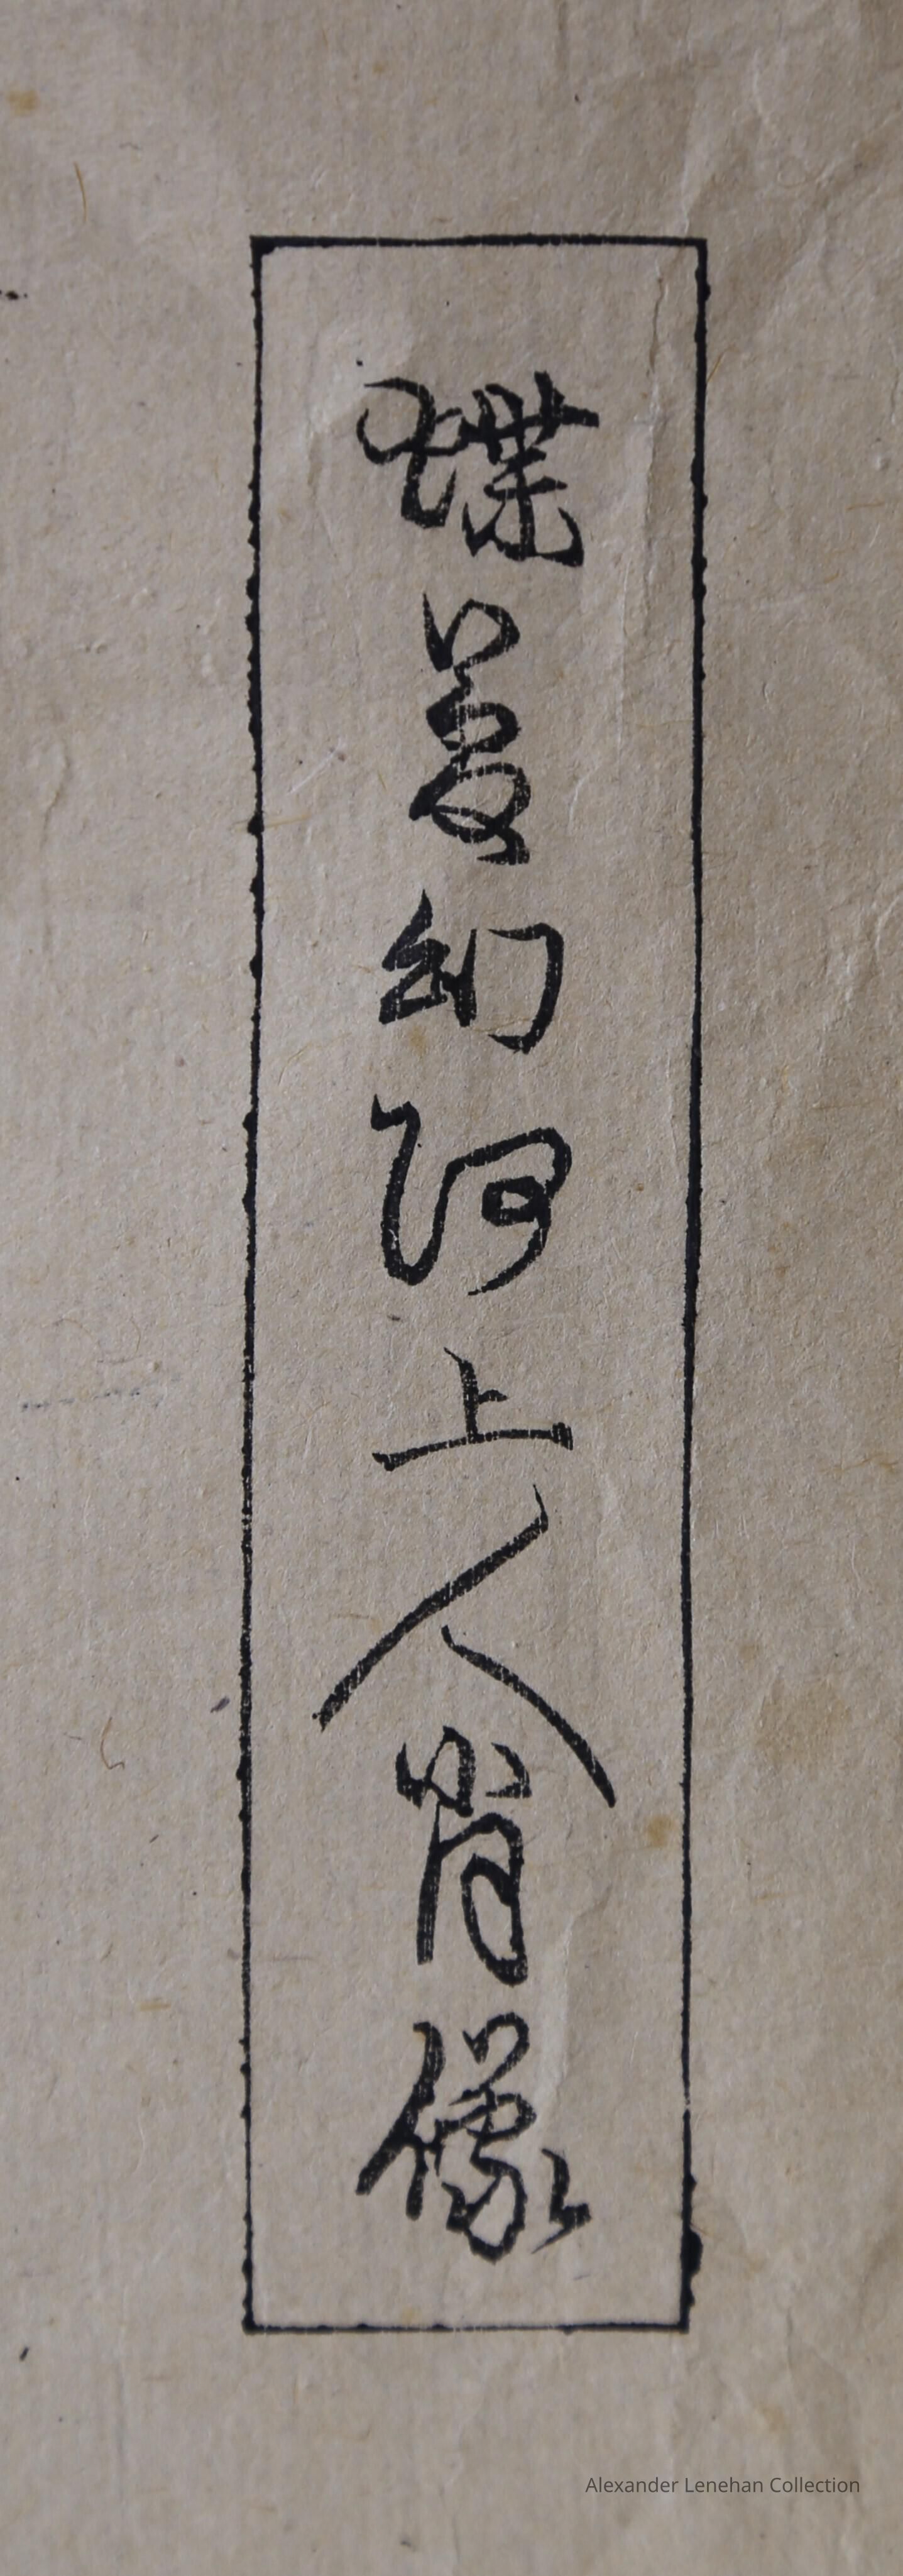 蝶夢幻阿上人肖像
Alexander Lenehan Collection